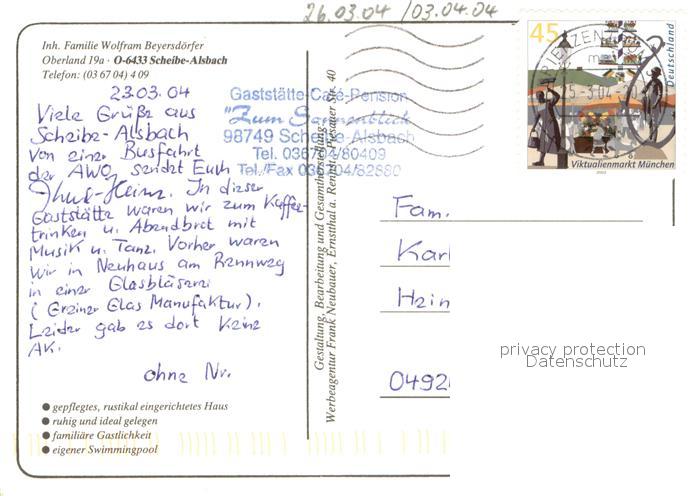 26.03.04 / 03.04.04
Inh. Familie Wolfram Beyersdörfer
Oberland 19a · O-6433 Scheibe-Alsbach
Telefon: (0 36 70 4) 4 09
23.03.04
Viele Grüße aus
Scheibe-Alsbach
Von einer Busfahrt
der AWO sendet Euch
Heinz. In dieser
Gaststätte waren wir zum Kaffee-
trinken u. Abendbrot mit
Musik u. Tanz. Vorher waren
wir in Neuhaus am Rennweg
in einer Glasbläserei
(Greiner Glas Manufaktur).
Leider gab es dort keine
AK.
ohne Nr.
● gepflegtes, rustikal eingerichtetes Haus
● ruhig und ideal gelegen
● familiäre Gastlichkeit
● eigener Swimmingpool
Gaststätte-Café-Pension
"Zum Sonnenblick"
98749 Scheibe-Alsbach
Tel. 036704/80409
Tel./Fax 036704/82680
Gestaltung, Bearbeitung und Gesamtherstellung:
Werbeagentur Frank Neubauer, Ernstthal a. Rennst., Piesauer Str. 40
45
Deutschland
Viktualienmarkt München
2003
Fam.
Karl
Hein
0492
privacy protection
Datenschutz